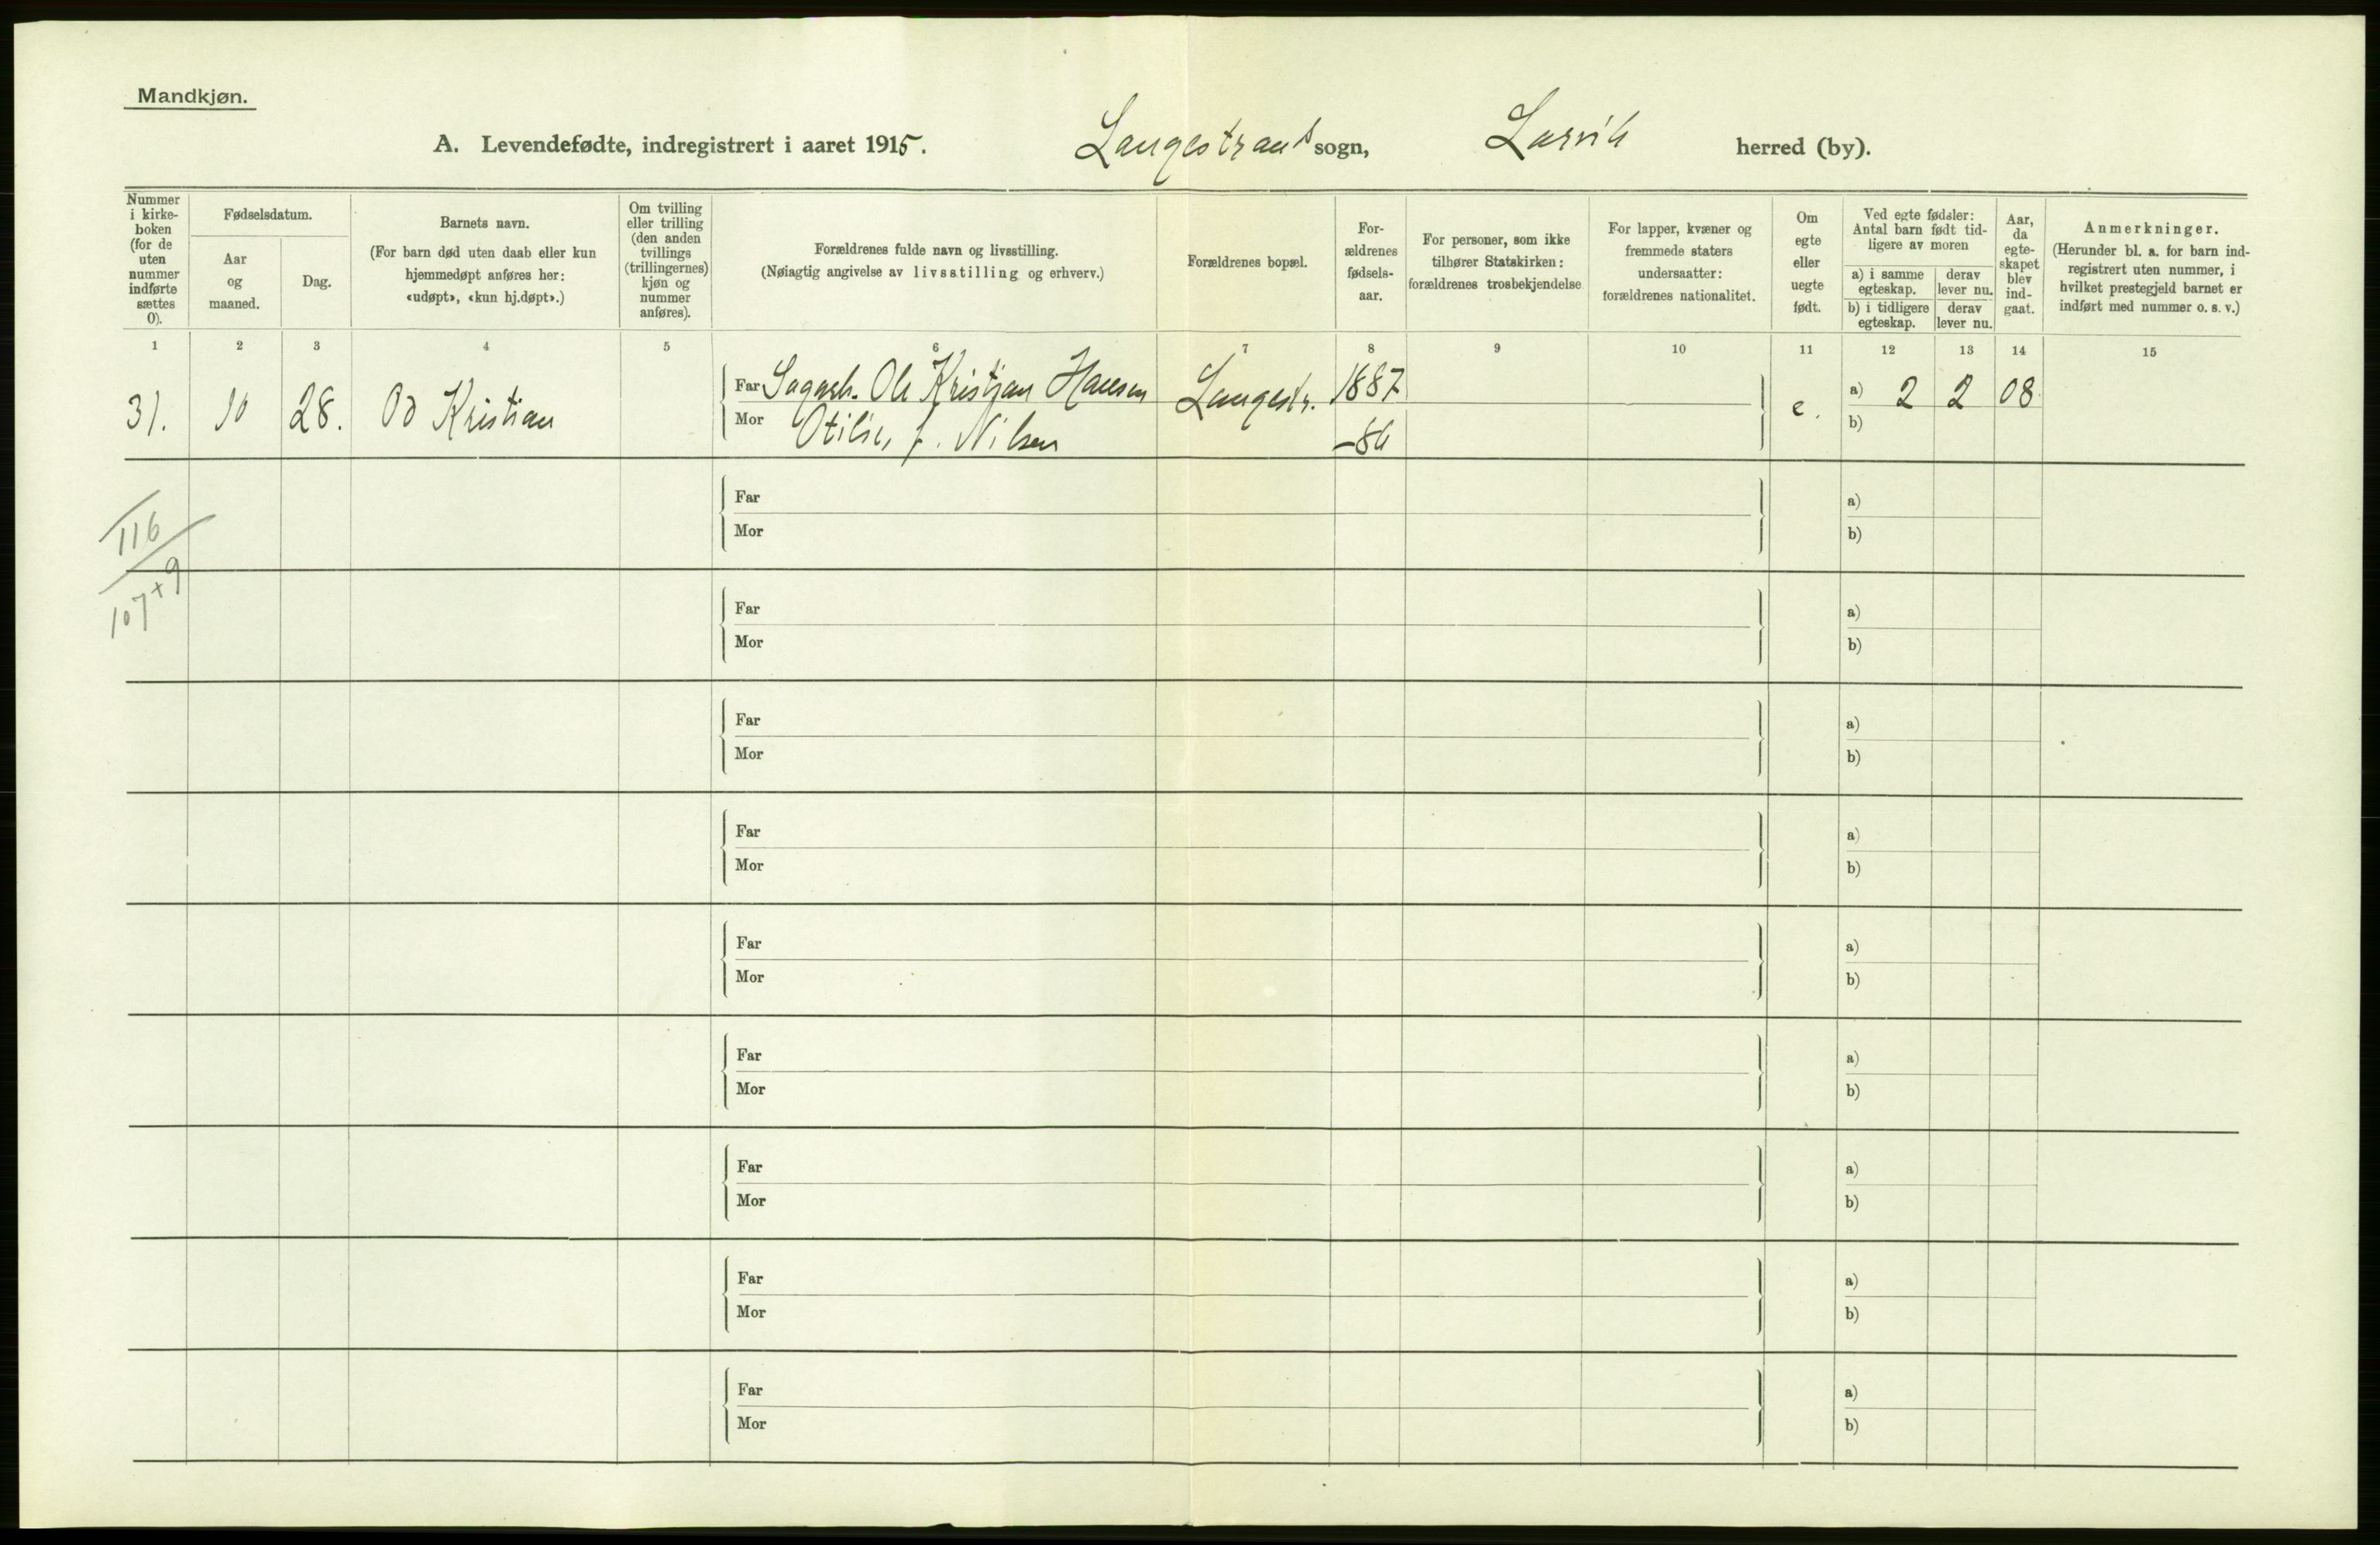 Mandkjøn.
A. Levendefødte, indregistrert i aaret 1915. Langestrand sogn, Larvik herred (by).
Nummer i kirke-boken (for de uten nummer indførte sættes 0).
Fødselsdatum.
Aar og maaned.
Dag.
Barnets navn.
(For barn død uten daab eller kun hjemmedøpt anføres her: «udøpt», «kun hj.døpt».)
Om tvilling eller trilling (den anden tvillings (trillingernes) kjøn og nummer anføres).
Forældrenes fulde navn og livsstilling.
(Nøiagtig angivelse av livsstilling og erhverv.)
Forældrenes bopæl.
For-ældrenes fødsels-aar.
For personer, som ikke tilhører Statskirken: forældrenes trosbekjendelse
For lapper, kvæner og fremmede staters undersaatter: forældrenes nationalitet.
Om egte eller uegte født.
Ved egte fødsler: Antal barn født tid-ligere av moren
a) i samme egteskap.
derav lever nu.
b) i tidligere egteskap.
derav lever nu.
Aar, da egte-skapet blev ind-gaat.
Anmerkninger.
(Herunder bl. a. for barn ind-registrert uten nummer, i hvilket prestegjeld barnet er indført med nummer o. s. v.)
1 2 3 4 5 6 7 8 9 10 11 12 13 14 15
31. 10 28. Od Kristian Far Sagarb. Ole Kristjan Hansen Langestr. 1887 e. a) 2 2 08
Mor Otilie, f. Nilsen -86 b)
116
107+9
Far a)
Mor b)
Far a)
Mor b)
Far a)
Mor b)
Far a)
Mor b)
Far a)
Mor b)
Far a)
Mor b)
Far a)
Mor b)
Far a)
Mor b)
Far a)
Mor b)